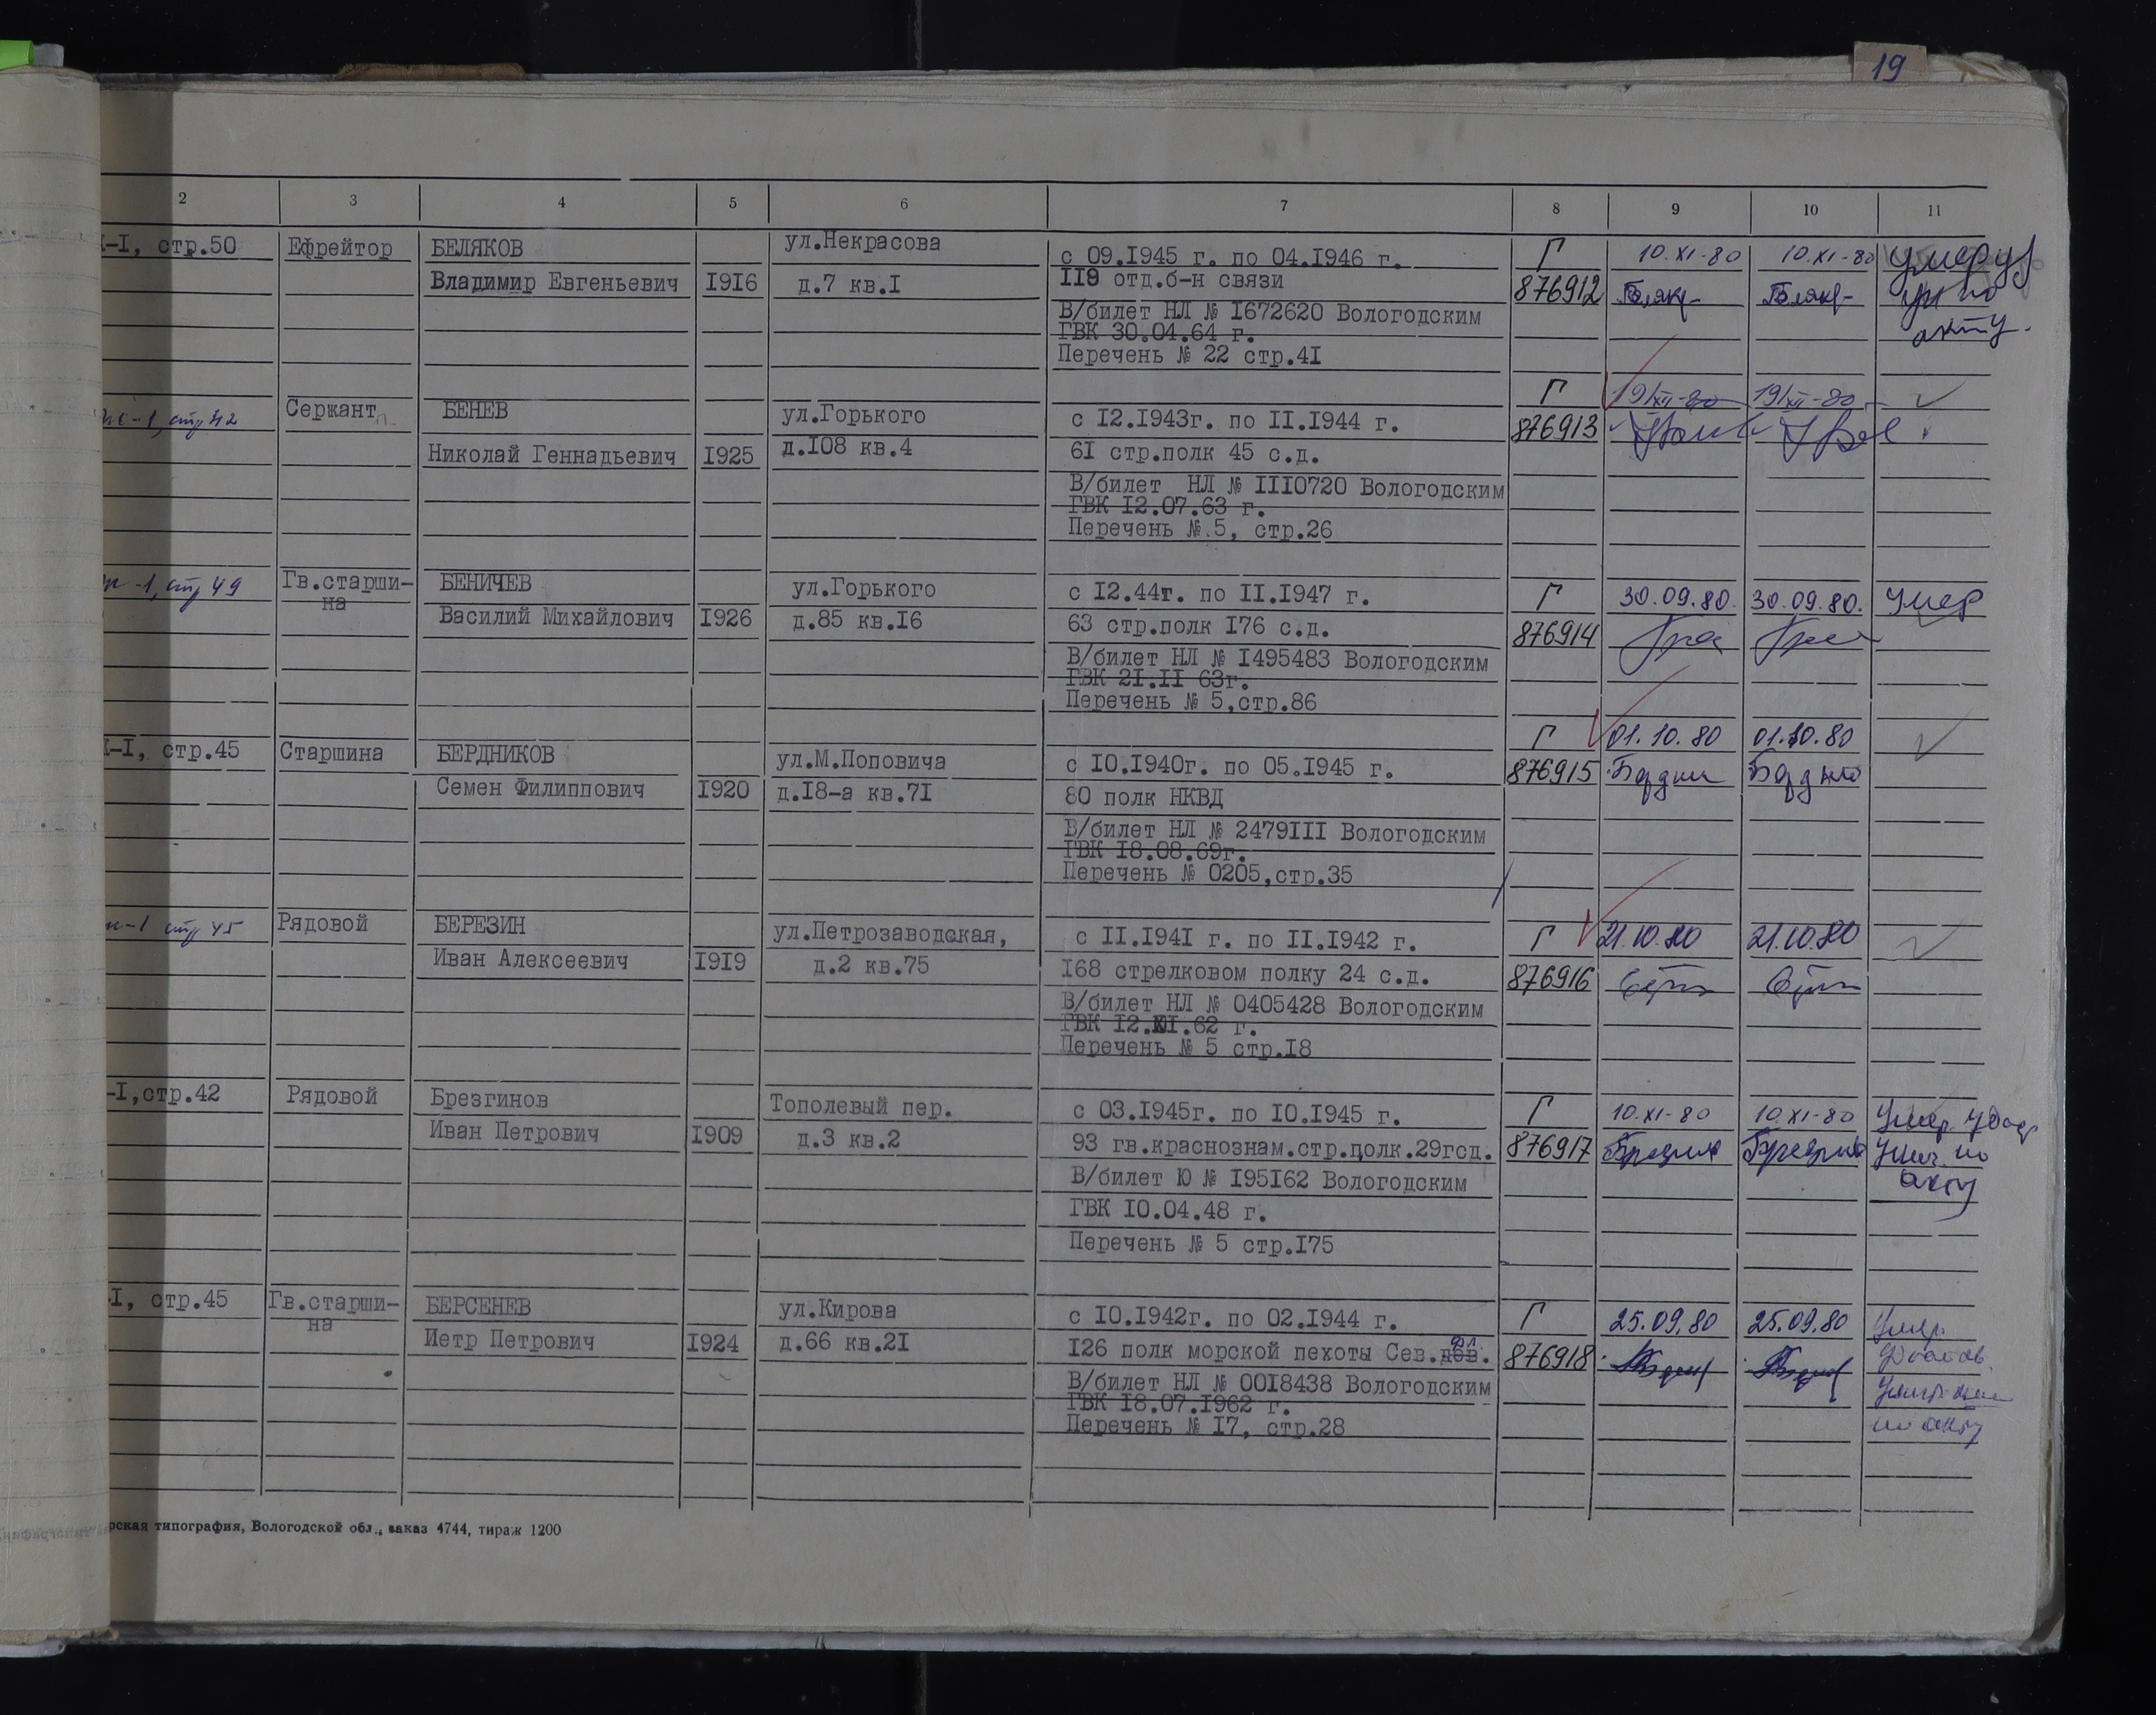 19
2 3 4 5 6 7 8 9 10 11
I-I, стр.50 Ефрейтор БЕЛЯКОВ ул.Некрасова с 09.I945 г. по 04.I946 г. Г 10.XI-80 10.XI-80 умер
Владимир Евгеньевич I9I6 д.7 кв.I II9 отд.б-н связи 876912 по
В/билет НЛ № I672620 Вологодским акту.
ГВК 30.04.64 г.
Перечень № 22 стр.4I
Г 19/XII-80 19/XII-80
-1, стр 42 Сержант БЕНЕВ ул.Горького с I2.I943г. по II.I944 г. 876913
Николай Геннадьевич I925 д.I08 кв.4 6I стр.полк 45 с.д.
В/билет НЛ № III0720 Вологодским
ГВК I2.07.63 г.
Перечень №.5, стр.26
-1, стр 49 Гв.старши- БЕНИЧЕВ ул.Горького с I2.44г. по II.I947 г. Г 30.09.80. 30.09.80. умер
на Василий Михайлович I926 д.85 кв.I6 63 стр.полк I76 с.д. 876914
В/билет НЛ № I495483 Вологодским
ГВК 2I.II 63г.
Перечень № 5,стр.86
I-I, стр.45 Старшина БЕРДНИКОВ ул.М.Поповича с I0.I940г. по 05.I945 г. Г 01.10.80 01.10.80
Семен Филиппович I920 д.I8-а кв.7I 80 полк НКВД 876915
В/билет НЛ № 2479III Вологодским
ГВК I8.08.69г.
Перечень № 0205,стр.35
-1 стр 45 Рядовой БЕРЕЗИН ул.Петрозаводская, с II.I94I г. по II.I942 г. Г 21.10.80 21.10.80
Иван Алексеевич I9I9 д.2 кв.75 I68 стрелковом полку 24 с.д. 876916
В/билет НЛ № 0405428 Вологодским
ГВК I2. .62 г.
Перечень № 5 стр.I8
-I,стр.42 Рядовой Брезгинов Тополевый пер. с 03.I945г. по I0.I945 г. Г 10.XI-80 10.XI-80 Умер. удост.
Иван Петрович I909 д.3 кв.2 93 гв.краснознам.стр.полк.29гсд. 876917 Унич. по
В/билет Ю № I95I62 Вологодским акту
ГВК I0.04.48 г.
Перечень № 5 стр.I75
-I, стр.45 Гв.старши- БЕРСЕНЕВ ул.Кирова с I0.I942г. по 02.I944 г. Г 25.09.80 25.09.80 Умер.
на Петр Петрович I924 д.66 кв.2I I26 полк морской пехоты Сев.дев. фл. 876918
В/билет НЛ № 00I8438 Вологодским
ГВК I8.07.I962 г. по акту
Перечень № I7, стр.28
рская типография, Вологодской обл., заказ 4744, тираж 1200